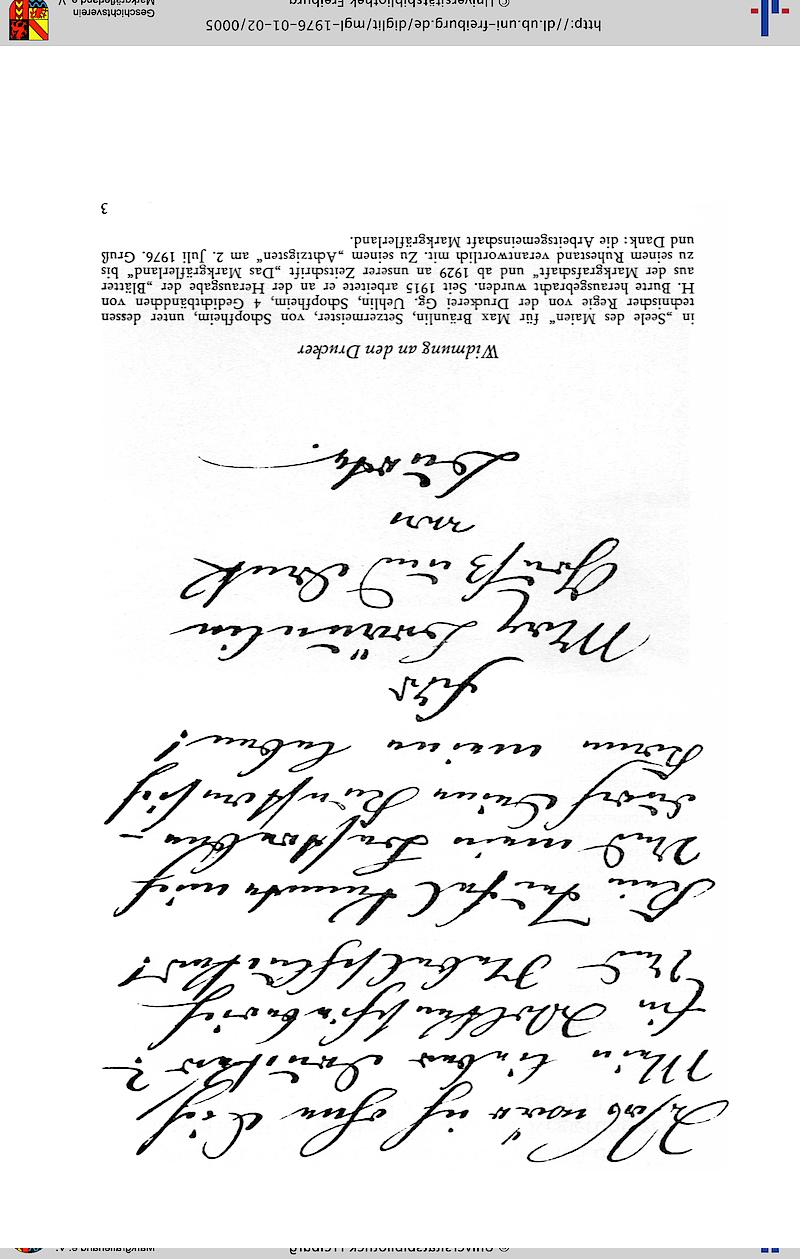 Markgräflerland e. V. © Universitätsbibliothek Freiburg
Was wär ich ohne Dich
Mein lieber Drucker?
Ein
Und Nebelschlucker!
Kein Teufel kennte mich
Und mein Bestreben –
Durch Deine
Kann meine leben!
für
Max Bräunlin
Gruß und Dank
von
Burte.
Widmung an den Drucker
in „Seele des Maien“ für Max Bräunlin, Setzermeister, von Schopfheim, unter dessen
technischer Regie von der Druckerei Gg. Uehlin, Schopfheim, 4 Gedichtbändchen von
H. Burte herausgebracht wurden. Seit 1915 arbeitete er an der Herausgabe der „Blätter
aus der Markgrafschaft“ und ab 1929 an unserer Zeitschrift „Das Markgräflerland“ bis
zu seinem Ruhestand verantwortlich mit. Zu seinem „Achtzigsten“ am 2. Juli 1976. Gruß
und Dank: die Arbeitsgemeinschaft Markgräflerland.
3
http://dl.ub.uni-freiburg.de/diglit/mgl-1976-01-02/0005
© Universitätsbibliothek Freiburg
Geschichtsverein
Markgräflerland e. V.